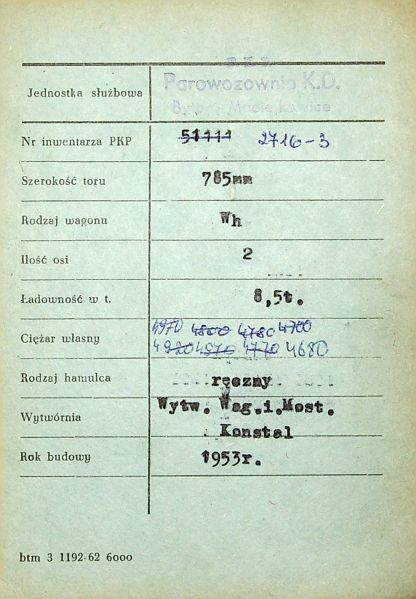 P.K.P.
Parowozownia K.D.
Jednostka służbowa
Nr inwentarza PKP 51111 2716-3
Szerokość toru 785mm
Rodzaj wagonu Wh
Ilość osi 2
Ładowność w t. 8,5t.
4970 4800 4780 4700
Ciężar własny
4920 4770 4680
Rodzaj hamulca ręczny
Wytw. Wag.i.Most.
Wytwórnia
Konstal
Rok budowy 1953r.
btm 3 1192-62 6000